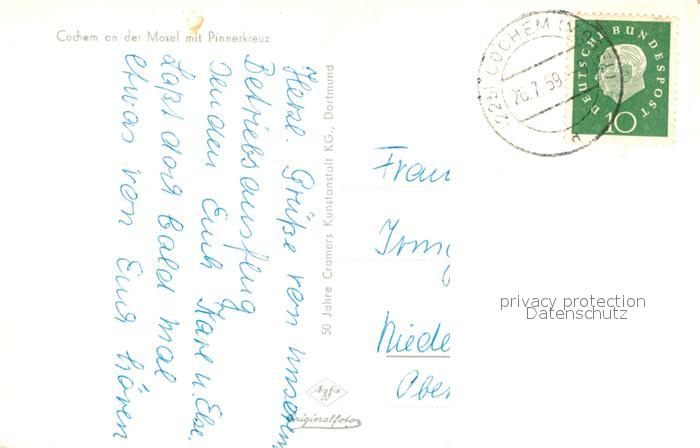 Cochem an der Mosel mit Pinnerkreuz
Herzl. Grüße von unserem
Betriebsausflug
senden Euch Karl u. Else.
Laßt doch bald mal
etwas von Euch hören
50 Jahre Cramers Kunstanstalt KG., Dortmund
Agfa
Originalfoto
(22b) COCHEM (MO
26.7.59.
DEUTSCHE BUNDESPOST
10
Frau
Irmg
Niede
Ober
privacy protection
Datenschutz